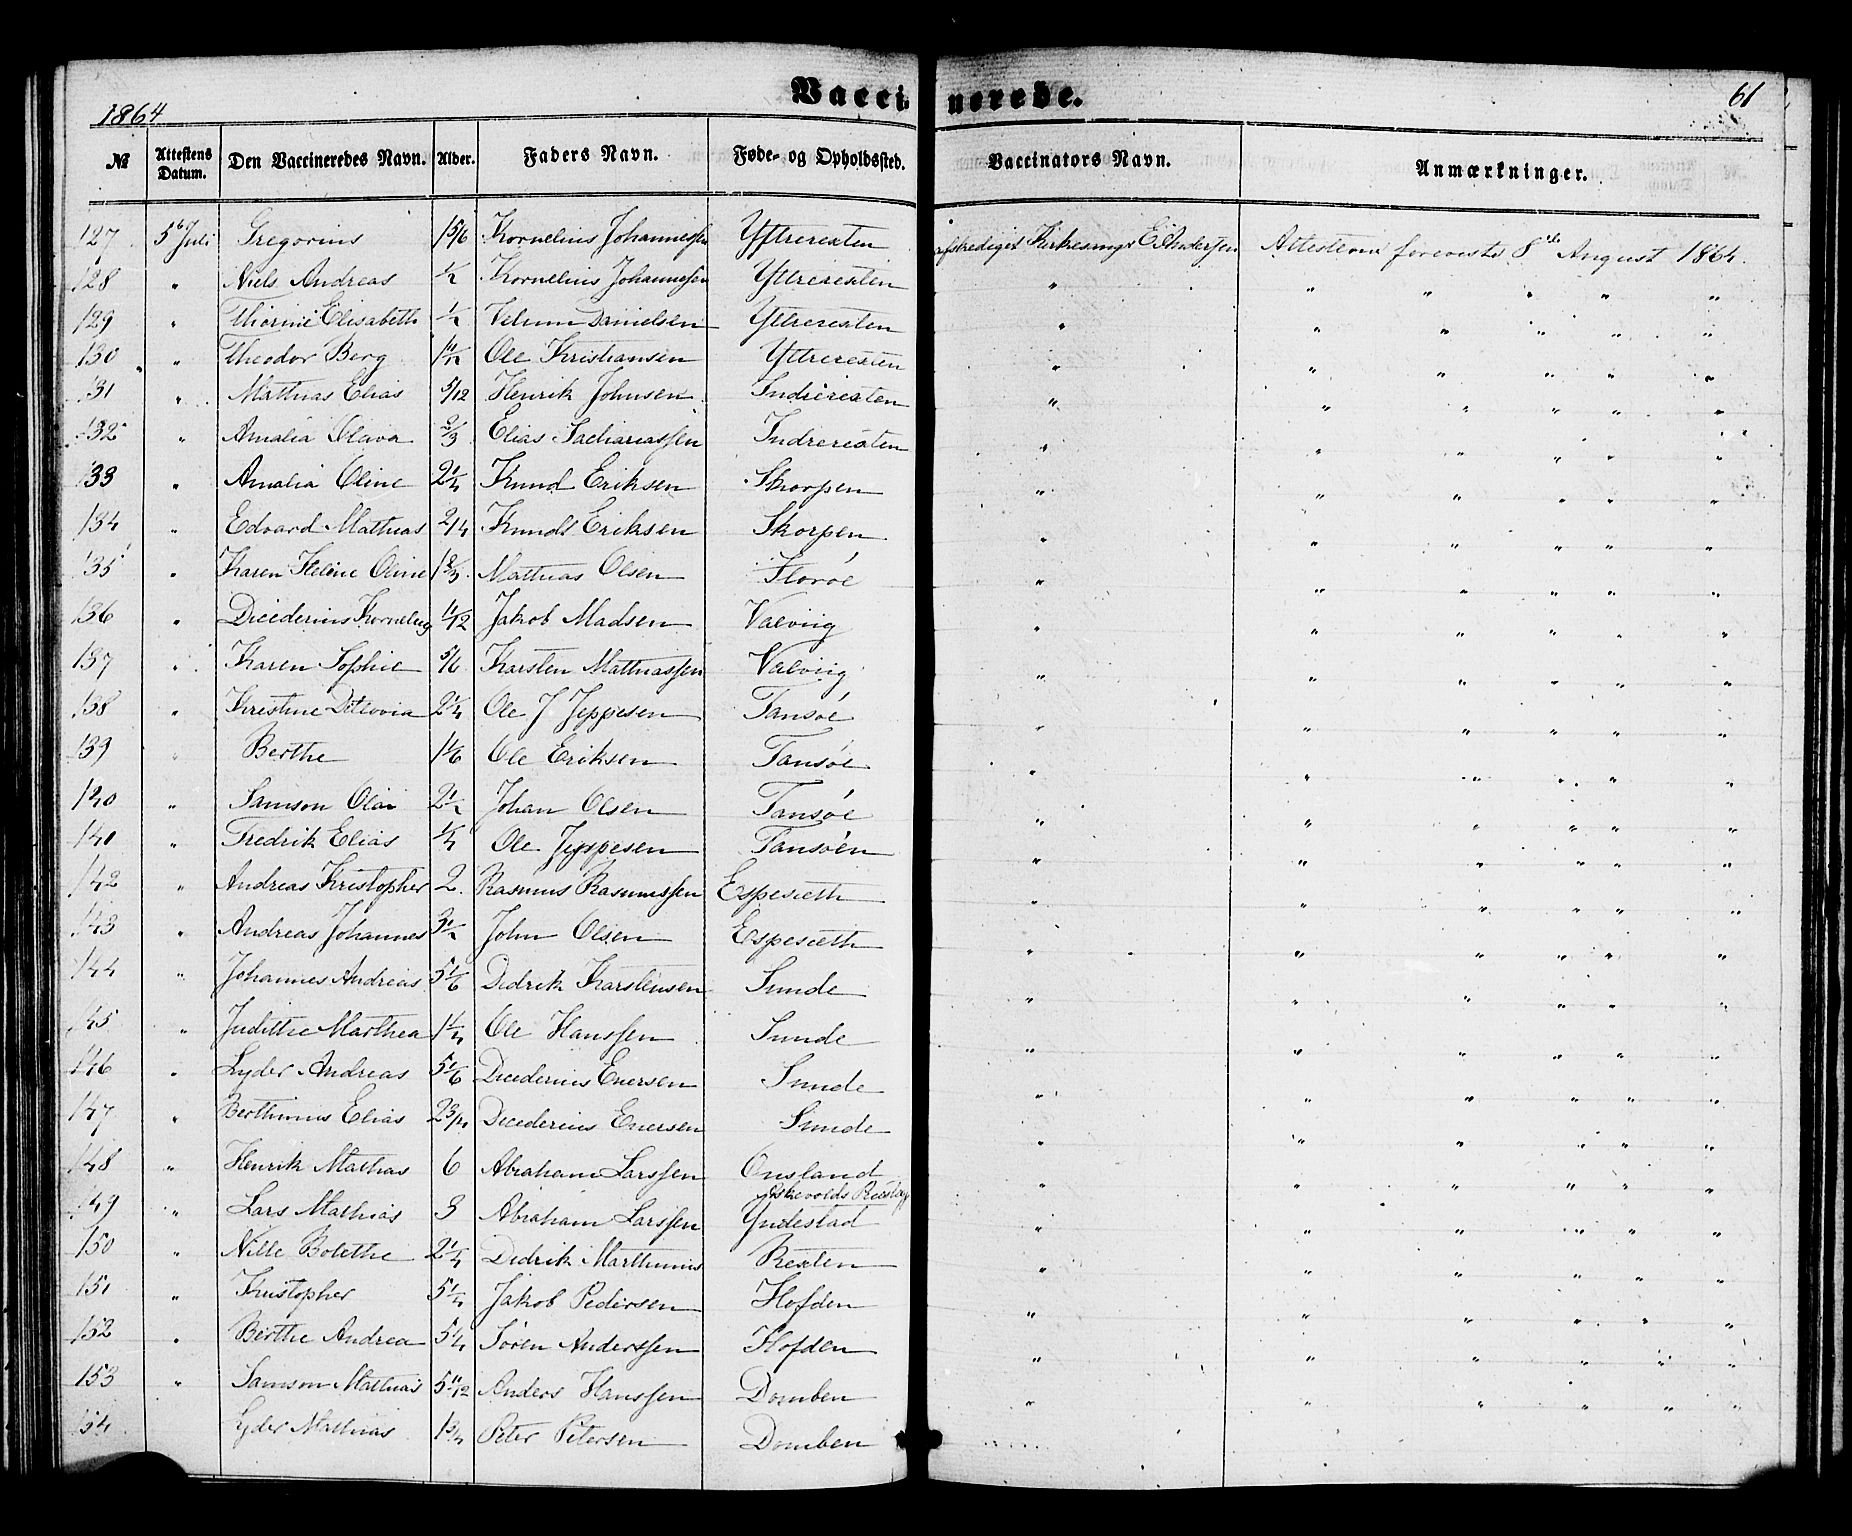 Vaccinerede.
1864
61
№ Attestens Datum. Den Vaccineredes Navn. Alder. Faders Navn. Føde- og Opholdssted. Vaccinators Navn. Anmærkninger.
127 5te Juli Gregorius 1 5/6 Kornelius Johannessen Yttrerexten Kirkesanger E. Andersen Attesterne foreviste 8de August 1864.
128 " Niels Andreas 1/2 Kornelius Johannessen Yttrerexten " " " " " "
129 " Thorine Elisabeth 1/2 Danielsen Yttrerexten " " " " " "
130 " Theodor Berg 11/12 Ole Kristiansen Yttrerexten " " " " " "
131 " Mathias Elias 5/12 Henrik Johnsen Indrerexten " " " " " "
132 " Amalia Olava 2/3 Elias Sachariassen Indrerexten " " " " " "
133 " Amalia Oline 2 1/4 Knud Eriksen Skorpen " " " " " "
134 " Edvard Mathias 2/4 Knudt Eriksen Skorpen " " " " " "
135 " Karen Heline Oline 1 2/3 Mathias Olsen Florøe " " " " " "
136 " Diederius Kornelius 11/12 Jakob Madsen Valviig " " " " " "
137 " Karen Sophie 5/6 Karsten Mathiassen Valviig " " " " " "
138 " Kristine Ditlovia 2 1/4 Ole J Jeppesen Tansøe " " " " " "
139 " Berthe 1 1/6 Ole Eriksen Tansøe " " " " " "
140 " Samson Olai 2 1/2 Johan Olsen Tansøe " " " " " "
140 " Fredrik Elias 1/4 Ole Jeppesen Tansøen " " " " " "
142 " Andreas Kristopher 2 Rasmus Rasmussen Espesæth " " " " " "
143 " Andreas Johannes 3 1/2 John Olsen Espesæth " " " " " "
144 " Johannes Andreas 5 1/6 Didrik Karstensen Sunde " " " " " "
145 " Judithe Marthea 1 1/4 Ole Hanssen Sunde " " " " " "
146 " Lyder Andreas 5 1/6 Diederius Enersen Sunde " " " " " "
147 " Berthinius Elias 2 3/4 Diederius Enersen Sunde " " " " " "
148 " Henrik Mathias 6 Abraham Larssen Onsland " " " " " "
Askevolds
149 " Lars Mathias 3 Abraham Larssen Yndestad " " " " " "
150 " Nille Bolethe 2 1/4 Didrik Marthinius Rexten " " " " " "
151 " Kristopher 5 1/4 Jakob Pedersen Hofden " " " " " "
152 " Berthe Andrea 5 1/4 Søren Anderssen Hofden " " " " " "
153 " Samson Mathias 5 11/12 Anders Hanssen Domben " " " " " "
154 Lyder Mathias 1 3/4 Peter Petersen Domben